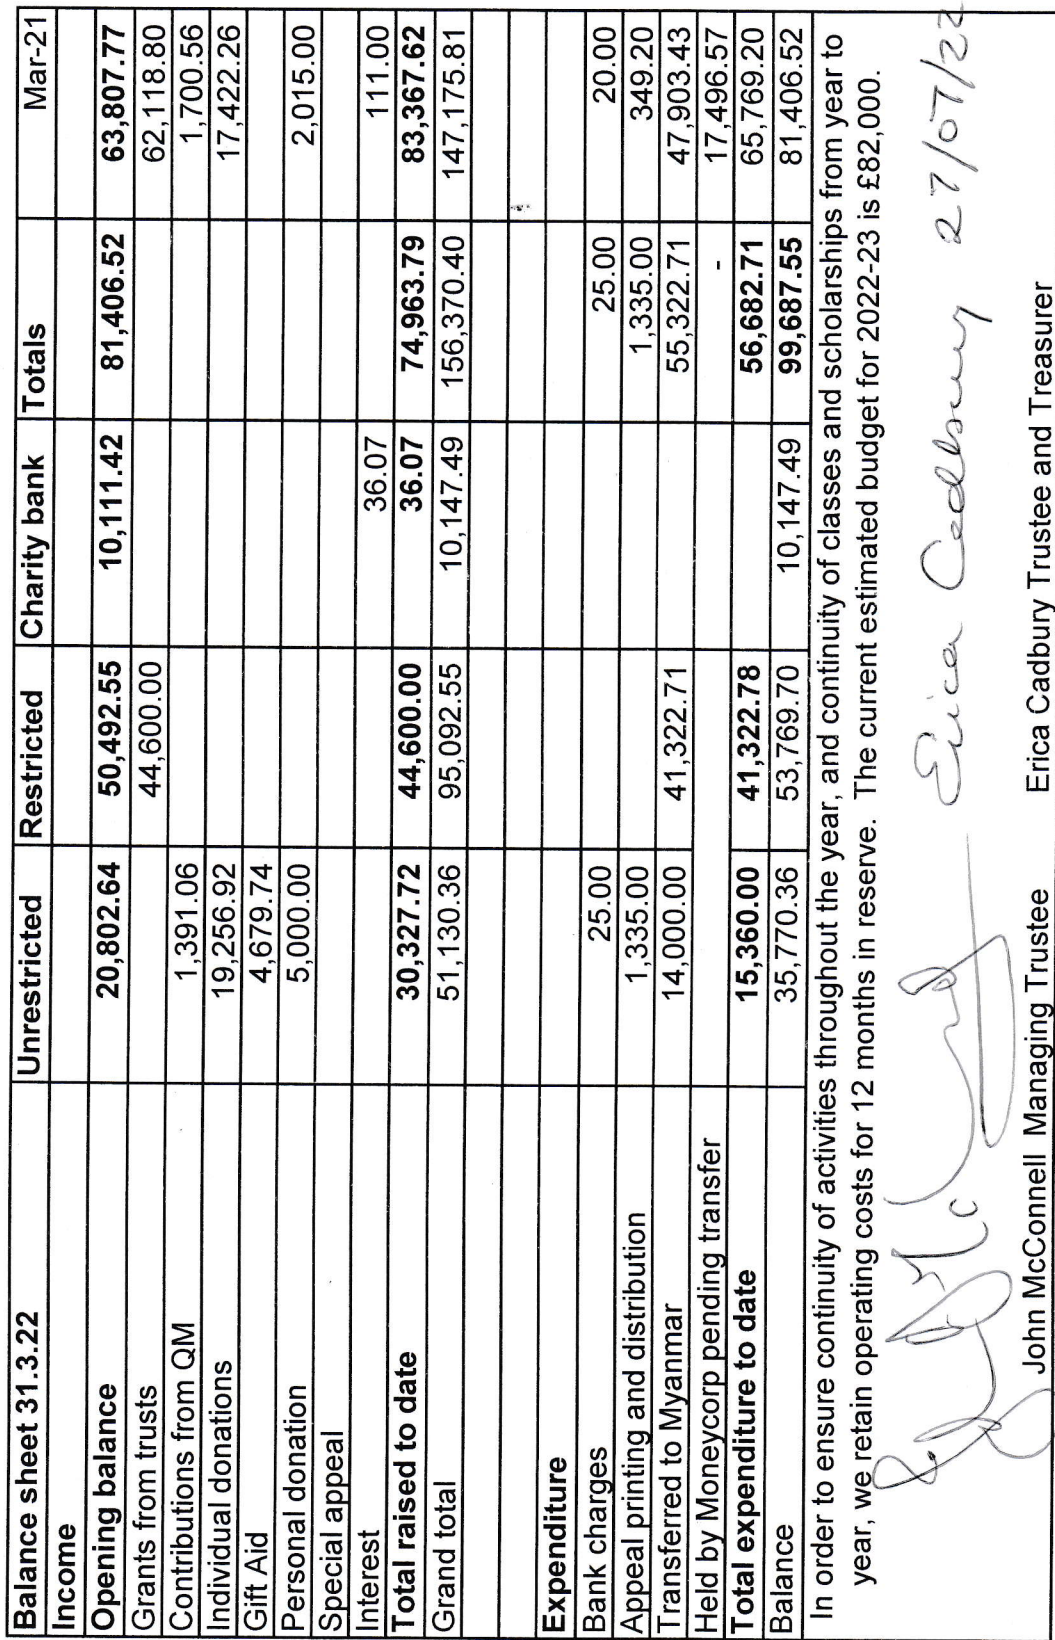 Balance sheet 31.3.22 Unrestricted Restricted Charity bank Totals Mar-21
Income
Opening balance 20,802.64 50,492.55 10,111.42 81,406.52 63,807.77
Grants from trusts 44,600.00 62,118.80
Contributions from QM 1,391.06 1,700.56
Individual donations 19,256.92 17,422.26
Gift Aid 4,679.74
Personal donation 5,000.00 2,015.00
Special appeal
Interest 36.07 111.00
Total raised to date 30,327.72 44,600.00 36.07 74,963.79 83,367.62
Grand total 51,130.36 95,092.55 10,147.49 156,370.40 147,175.81
Expenditure
Bank charges 25.00 25.00 20.00
Appeal printing and distribution 1,335.00 1,335.00 349.20
Transferred to Myanmar 14,000.00 41,322.71 55,322.71 47,903.43
Held by Moneycorp pending transfer - 17,496.57
Total expenditure to date 15,360.00 41,322.78 56,682.71 65,769.20
Balance 35,770.36 53,769.70 10,147.49 99,687.55 81,406.52
In order to ensure continuity of activities throughout the year, and continuity of classes and scholarships from year to
year, we retain operating costs for 12 months in reserve. The current estimated budget for 2022-23 is £82,000.
Erica Cadbury 27/07/22
John McConnell Managing Trustee Erica Cadbury Trustee and Treasurer